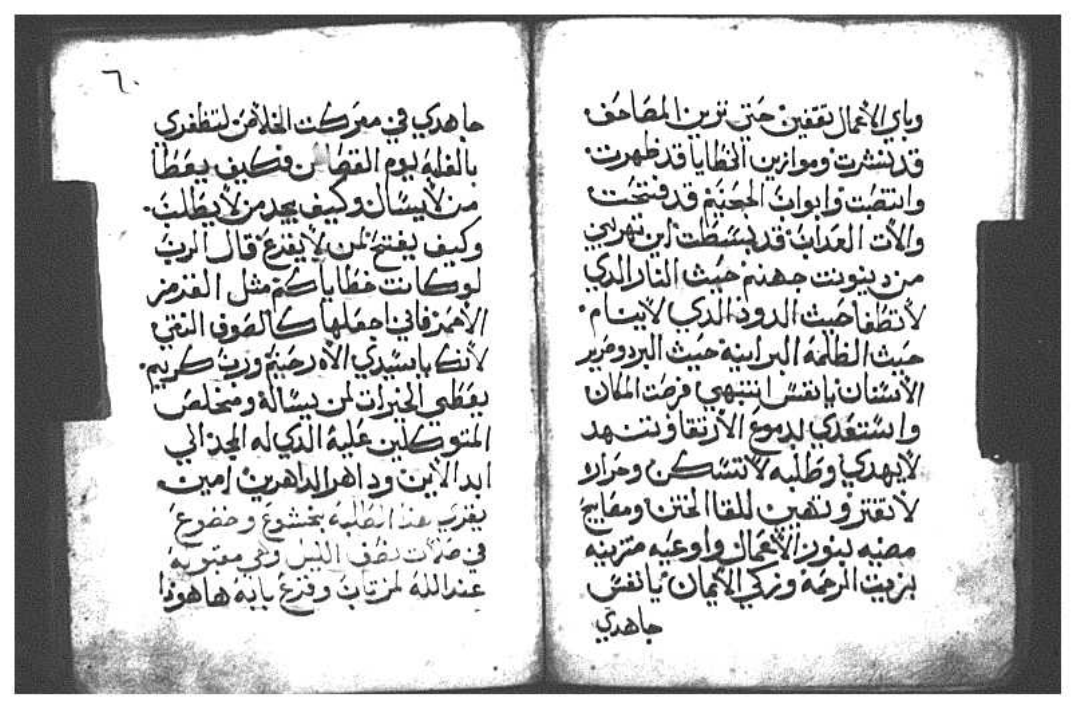 وباي الاعمال تقفين حتي تزين المصاحف
قد نشرت وموازين الخطايا قد ظهرت
وانتصبت وابواب الجحيم قد فتحت
والات العداب قد بسطت اين تهربي
من دينونت جهنم حيث النار الدي
لا تطفا حيث الدود الدي لا ينام
حيث الظلمه البرانيه حيث البرد وصرير
الاسنان يا نفس انتبهي فرصت المكان
واستعدي بدموع الارتقا وتنهد
لا يهدي وطلبه لا تتسكن وحراره
لا تفتر وتهين للقا الختن ومصابيح
مضيه بنور الاعمال واوعيه متزينه
بزيت الرحمه وزكي الايمان يا نفس
جاهدي
٦٠
جاهدي في معركت الخلاص لتظفري
بالغلبه يوم القصاص فكيف يعطا
من لا يسال وكيف يجد من لا يطلب
وكيف يفتح لمن لا يقرع قال الرب
لو كانت خطاياكم مثل القرمز
الاحمر فاني اجعلها كالصوف النقي
لانك يا سيدي الاه رحيم ورب كريم
يعطي الخيرات لمن يساله ومخلص
المتوكلين عليه الدي له المجد الي
ابد الابدين وداهر الداهرين امين
يقرى هذا الطلبه بخشوع وخضوع
في صلات نصف الليل وهي مقبوله
عند الله لمن تاب وقرع بابه هاهودا